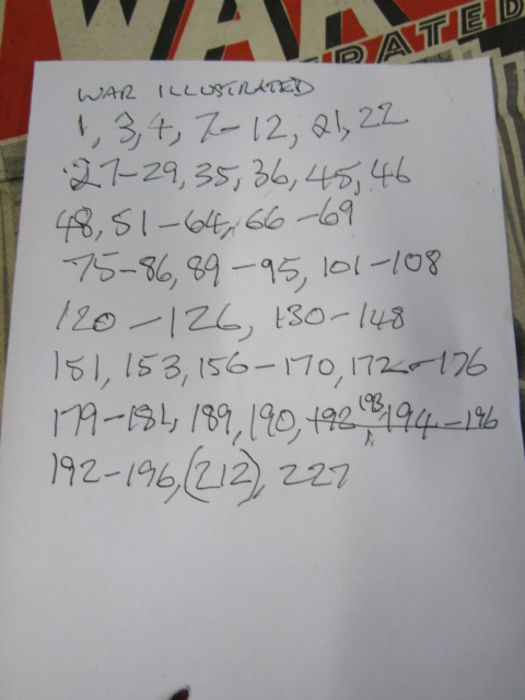 WAR
RATED
WAR ILLUSTRATED
1, 3, 4, 7-12, 21, 22
27-29, 35, 36, 45, 46
48, 51-64, 66-69
75-86, 89-95, 101-108
120-126, 130-148
151, 153, 156-170, 172-176
179-181, 189, 190, 192, 193, 194-196
192-196, (212), 227